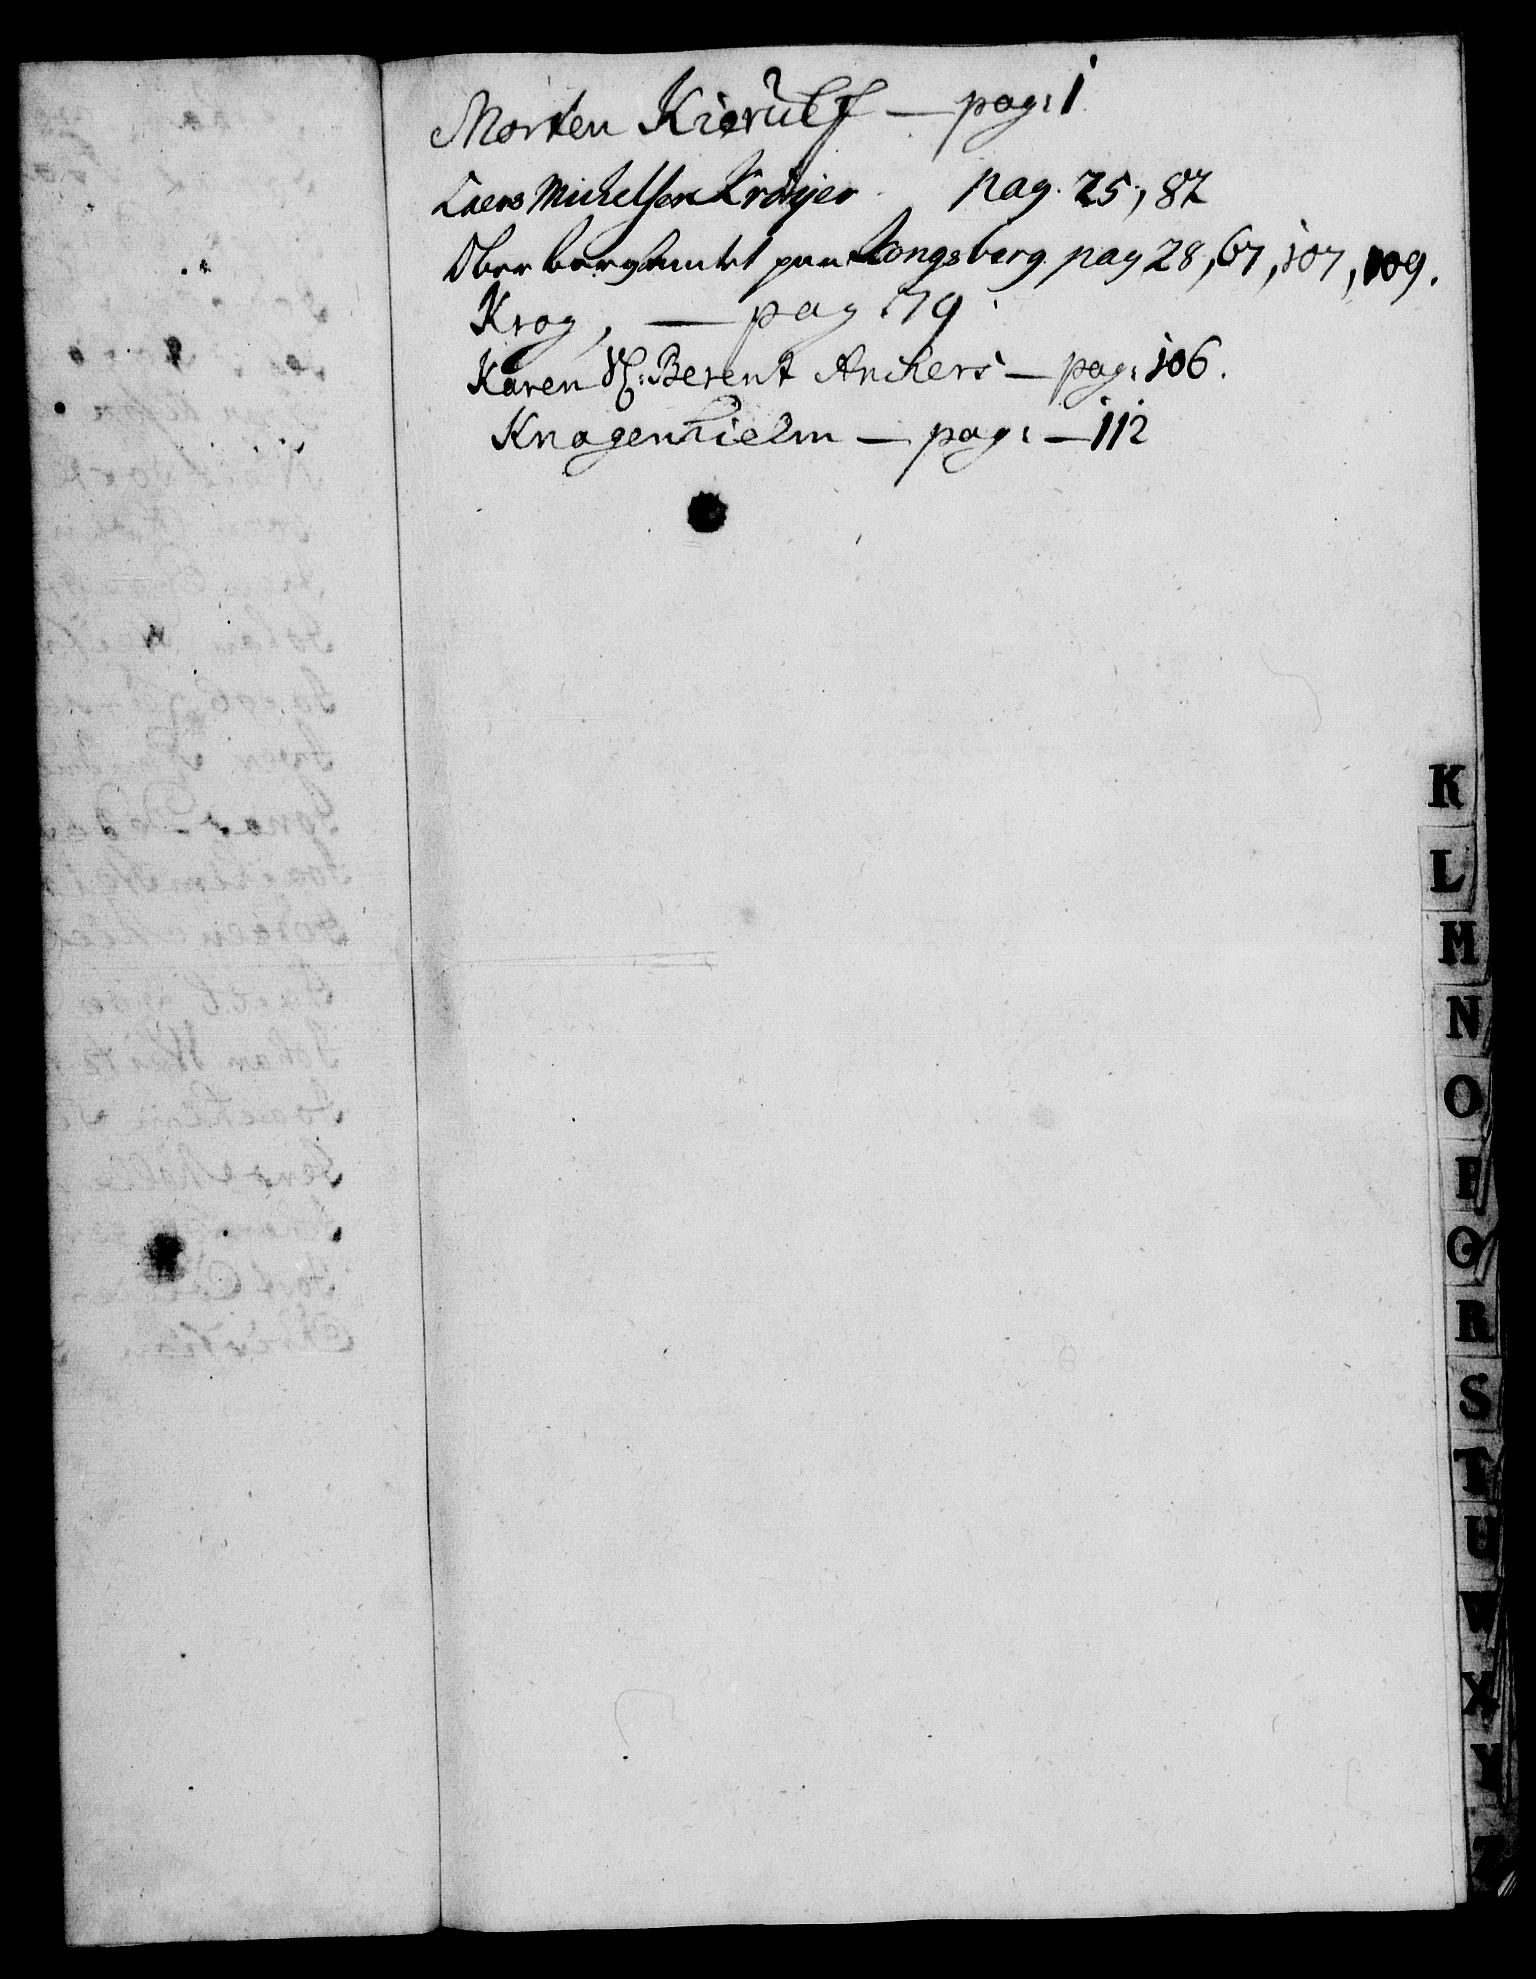 Morten Kierulf — pag: 1
Laers Michelsen Krøyer pag. 25, 87
Oberbergamtet paa Kongsberg pag 28, 67, 107, 109.
Krog, — pag. 79
Karen Sl: Berent Anchers — pag: 106.
Knagenhielm — pag: — 112
K
L
M
N
O
P
Q
R
S
T
U
W
X
Y
Z